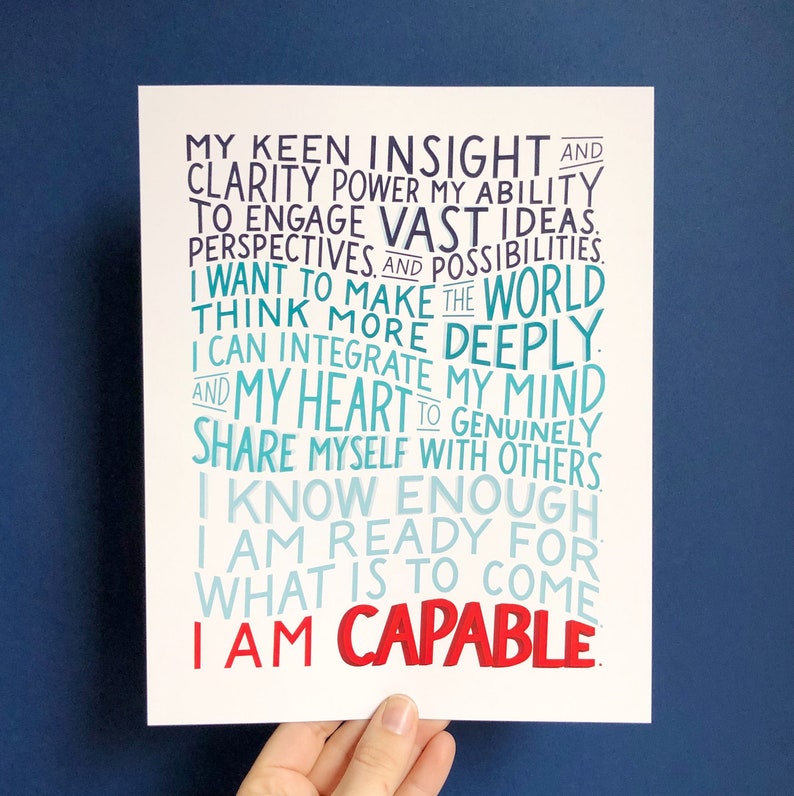 MY KEEN INSIGHT AND
CLARITY POWER MY ABILITY
TO ENGAGE VAST IDEAS,
PERSPECTIVES, AND POSSIBILITIES.
I WANT TO MAKE THE WORLD
THINK MORE DEEPLY.
I CAN INTEGRATE MY MIND
AND MY HEART TO GENUINELY
SHARE MYSELF WITH OTHERS.
I KNOW ENOUGH.
I AM READY FOR
WHAT IS TO COME.
I AM CAPABLE.